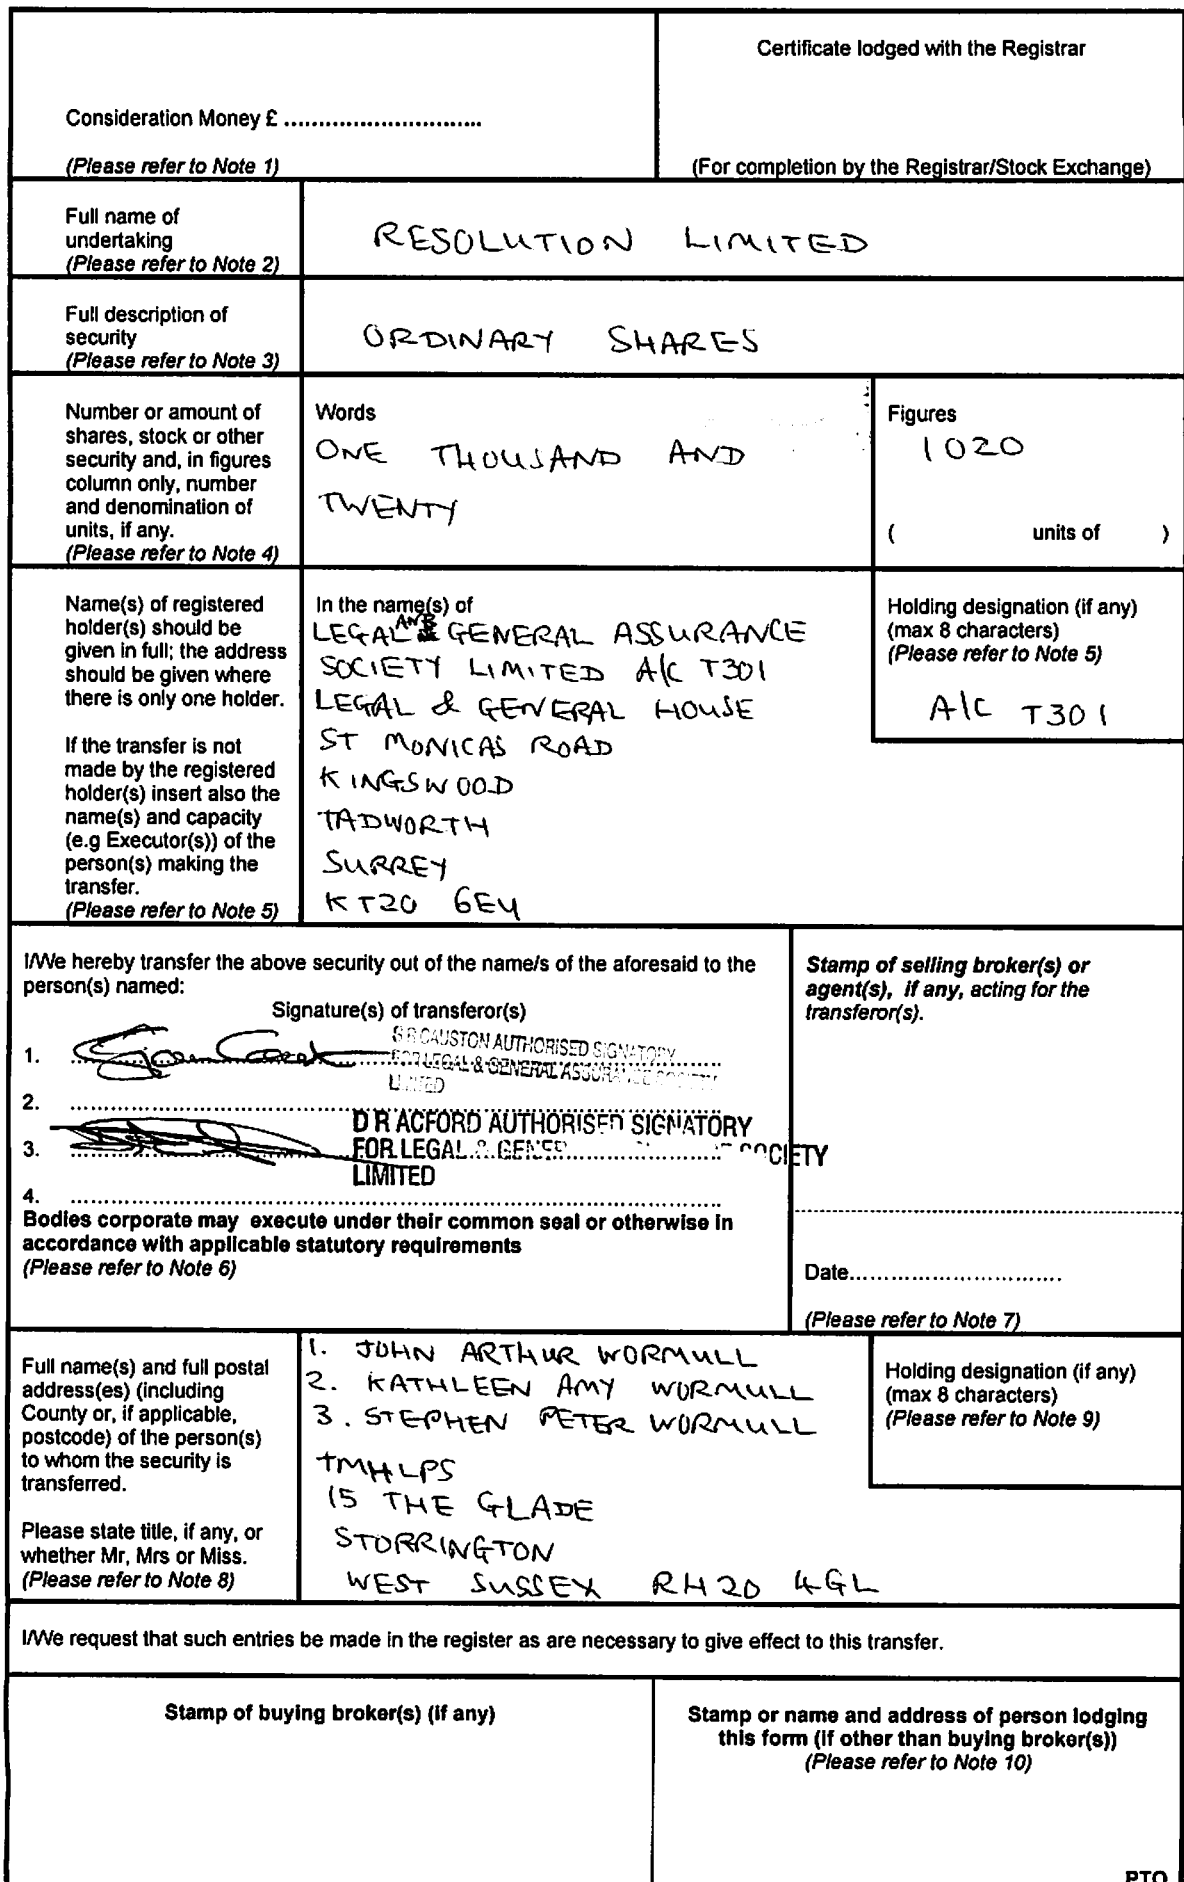 Certificate lodged with the Registrar
Consideration Money £ ..............................
(Please refer to Note 1)
(For completion by the Registrar/Stock Exchange)
Full name of
undertaking
(Please refer to Note 2)
RESOLUTION LIMITED
Full description of
security
(Please refer to Note 3)
ORDINARY SHARES
Number or amount of
shares, stock or other
security and, in figures
column only, number
and denomination of
units, if any.
(Please refer to Note 4)
Words
ONE THOUSAND AND
TWENTY
Figures
1020
( units of )
Name(s) of registered
holder(s) should be
given in full; the address
should be given where
there is only one holder.
If the transfer is not
made by the registered
holder(s) insert also the
name(s) and capacity
(e.g Executor(s)) of the
person(s) making the
transfer.
(Please refer to Note 5)
In the name(s) of
LEGAL AND GENERAL ASSURANCE
SOCIETY LIMITED A/C T301
LEGAL & GENERAL HOUSE
ST MONICAS ROAD
KINGSWOOD
TADWORTH
SURREY
KT20 6EU
Holding designation (if any)
(max 8 characters)
(Please refer to Note 5)
A/C T301
I/We hereby transfer the above security out of the name/s of the aforesaid to the
person(s) named:
Signature(s) of transferor(s)
1.
S R CAUSTON AUTHORISED SIGNATORY
FOR LEGAL & GENERAL ASSURANCE SOCIETY
LIMITED
2.
D R ACFORD AUTHORISED SIGNATORY
3.
FOR LEGAL & GENER SOCIETY
LIMITED
4.
Bodies corporate may execute under their common seal or otherwise in
accordance with applicable statutory requirements
(Please refer to Note 6)
Stamp of selling broker(s) or
agent(s), if any, acting for the
transferor(s).
Date..............................
(Please refer to Note 7)
Full name(s) and full postal
address(es) (including
County or, if applicable,
postcode) of the person(s)
to whom the security is
transferred.
Please state title, if any, or
whether Mr, Mrs or Miss.
(Please refer to Note 8)
1. JOHN ARTHUR WORMULL
2. KATHLEEN AMY WORMULL
3. STEPHEN PETER WORMULL
TMHLPS
15 THE GLADE
STORRINGTON
WEST SUSSEX RH20 4GL
Holding designation (if any)
(max 8 characters)
(Please refer to Note 9)
I/We request that such entries be made in the register as are necessary to give effect to this transfer.
Stamp of buying broker(s) (if any)
Stamp or name and address of person lodging
this form (if other than buying broker(s))
(Please refer to Note 10)
PTO